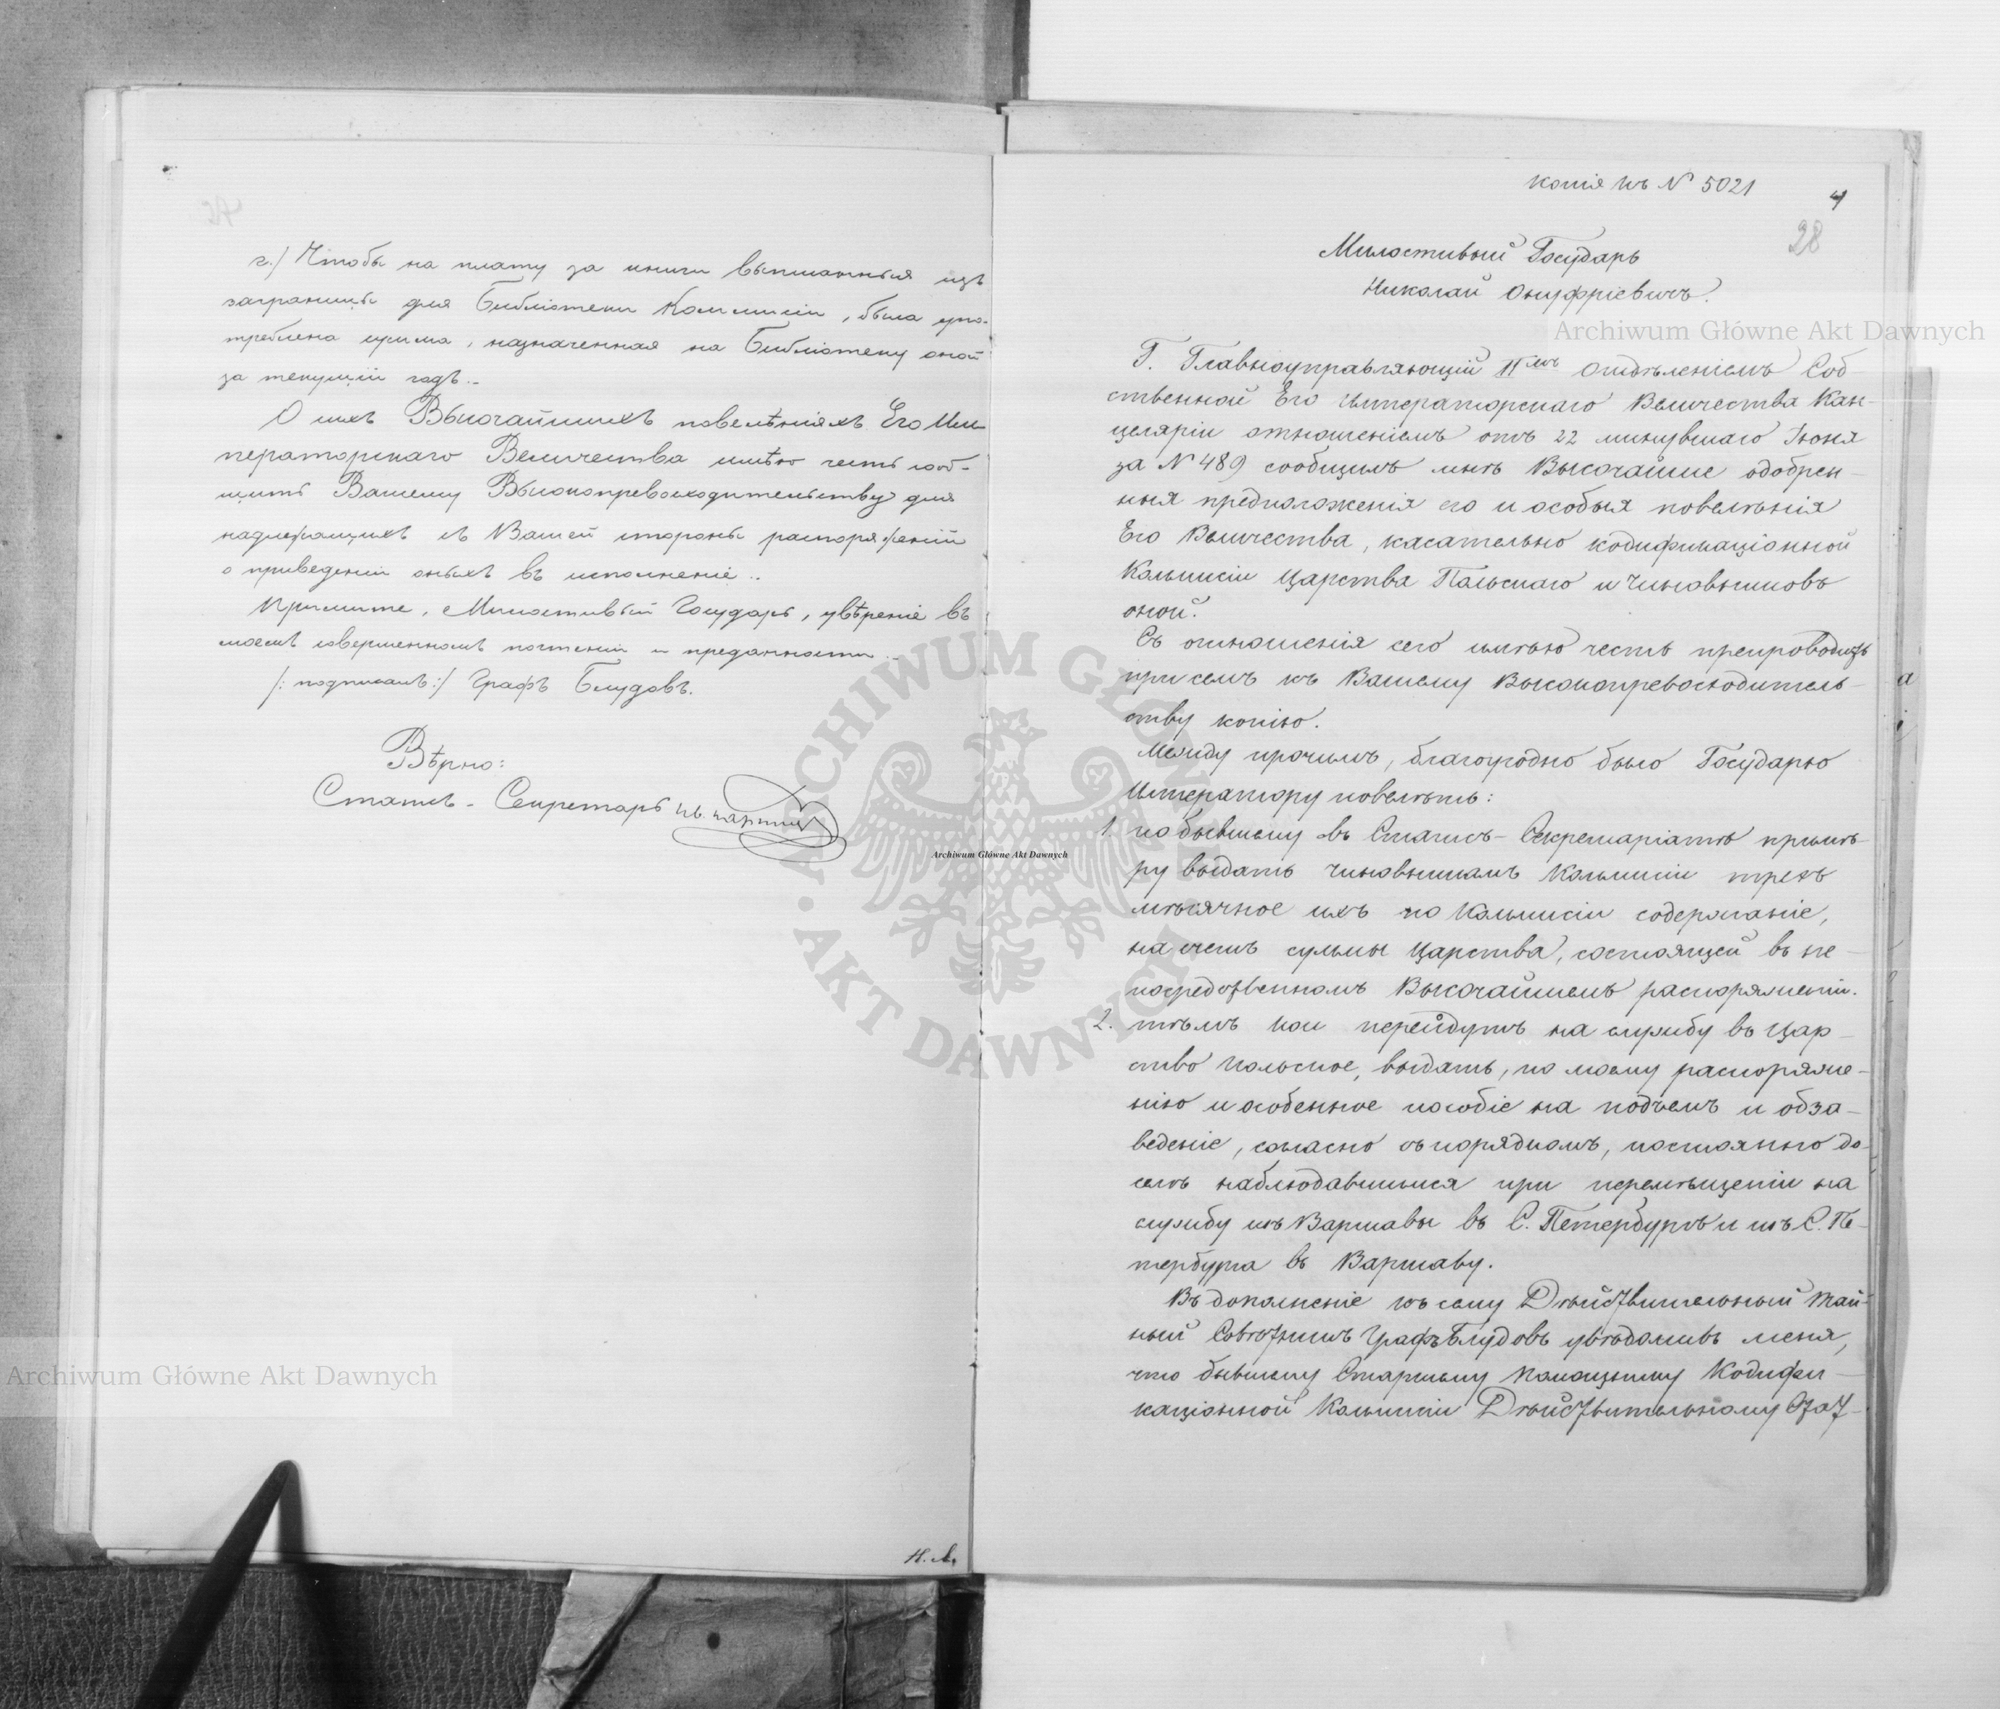 г./ Чтобы на плату за книги выписанныя изъ
заграницы для Библіотеки Коммисіи, была упо-
треблена сумма, назначенная на Библіотеку оной
за текущій годъ.-
О сихъ Высочайшихъ повелѣніяхъ Его Им-
ператорскаго Величества имѣю честь сооб-
щить Вашему Высокопревосходительству для
надлежащихъ съ Вашей стороны распоряженій
о приведеніи оныхъ въ исполненіе..
Примите, Милостивый Государь, увѣреніе въ
моемъ совершенномъ почтеніи и преданности.-
/: подписалъ:/ Графъ Блудовъ.
Вѣрно:
Статсъ-Секретарь
Н. Л.
копія къ N 5021
4
28
Милостивый Государь
Николай Онуфріевичъ.
Г. Главноуправляющій IIмъ Отдѣленіемъ Соб-
ственной Его Императорскаго Величества Кан-
целяріи отношеніемъ отъ 22 минувшаго Іюня
за N 489 сообщилъ мнѣ Высочайше одобрен-
ныя предположенія его и особыя повелѣнія
Его Величества, касательно кодификаціонной
Коммисіи Царства Польскаго и чиновниковъ
оной.
Съ отношенія сего имѣю честь препроводить
при семъ къ Вашему Высокопревосходитель-
ству копію.
Между прочимъ, благоугодно было Государю
Императору повелѣть:
1. по бывшему въ Статсъ-Секретаріатѣ примѣ-
ру выдать чиновникамъ Коммисіи трехъ
мѣсячное ихъ по Коммисіи содержаніе,
на счетъ суммы Царства, состоящей въ не-
посредственномъ Высочайшемъ распоряженіи.
2. тѣмъ кои перейдутъ на службу въ Цар-
ство Польское, выдать, по моему распоряже-
нію и особенное пособіе на подъемъ и обза-
веденіе, согласно съ порядкомъ, постоянно до-
селѣ наблюдавшимся при перемѣщеніи на
службу изъ Варшавы въ С. Петербургъ и изъ С. Пе-
тербурга въ Варшаву.
Въ дополненіе къ сему Дѣйствительный Тай-
ный Совѣтникъ Графъ Блудовъ увѣдомивъ меня,
что бывшему Старшему Помощнику Кодифи-
каціонной Коммисіи Дѣйствительному Стат-
Archiwum Główne Akt Dawnych
Archiwum Główne Akt Dawnych
Archiwum Główne Akt Dawnych
ARCHIWUM GŁÓWNE AKT DAWNYCH